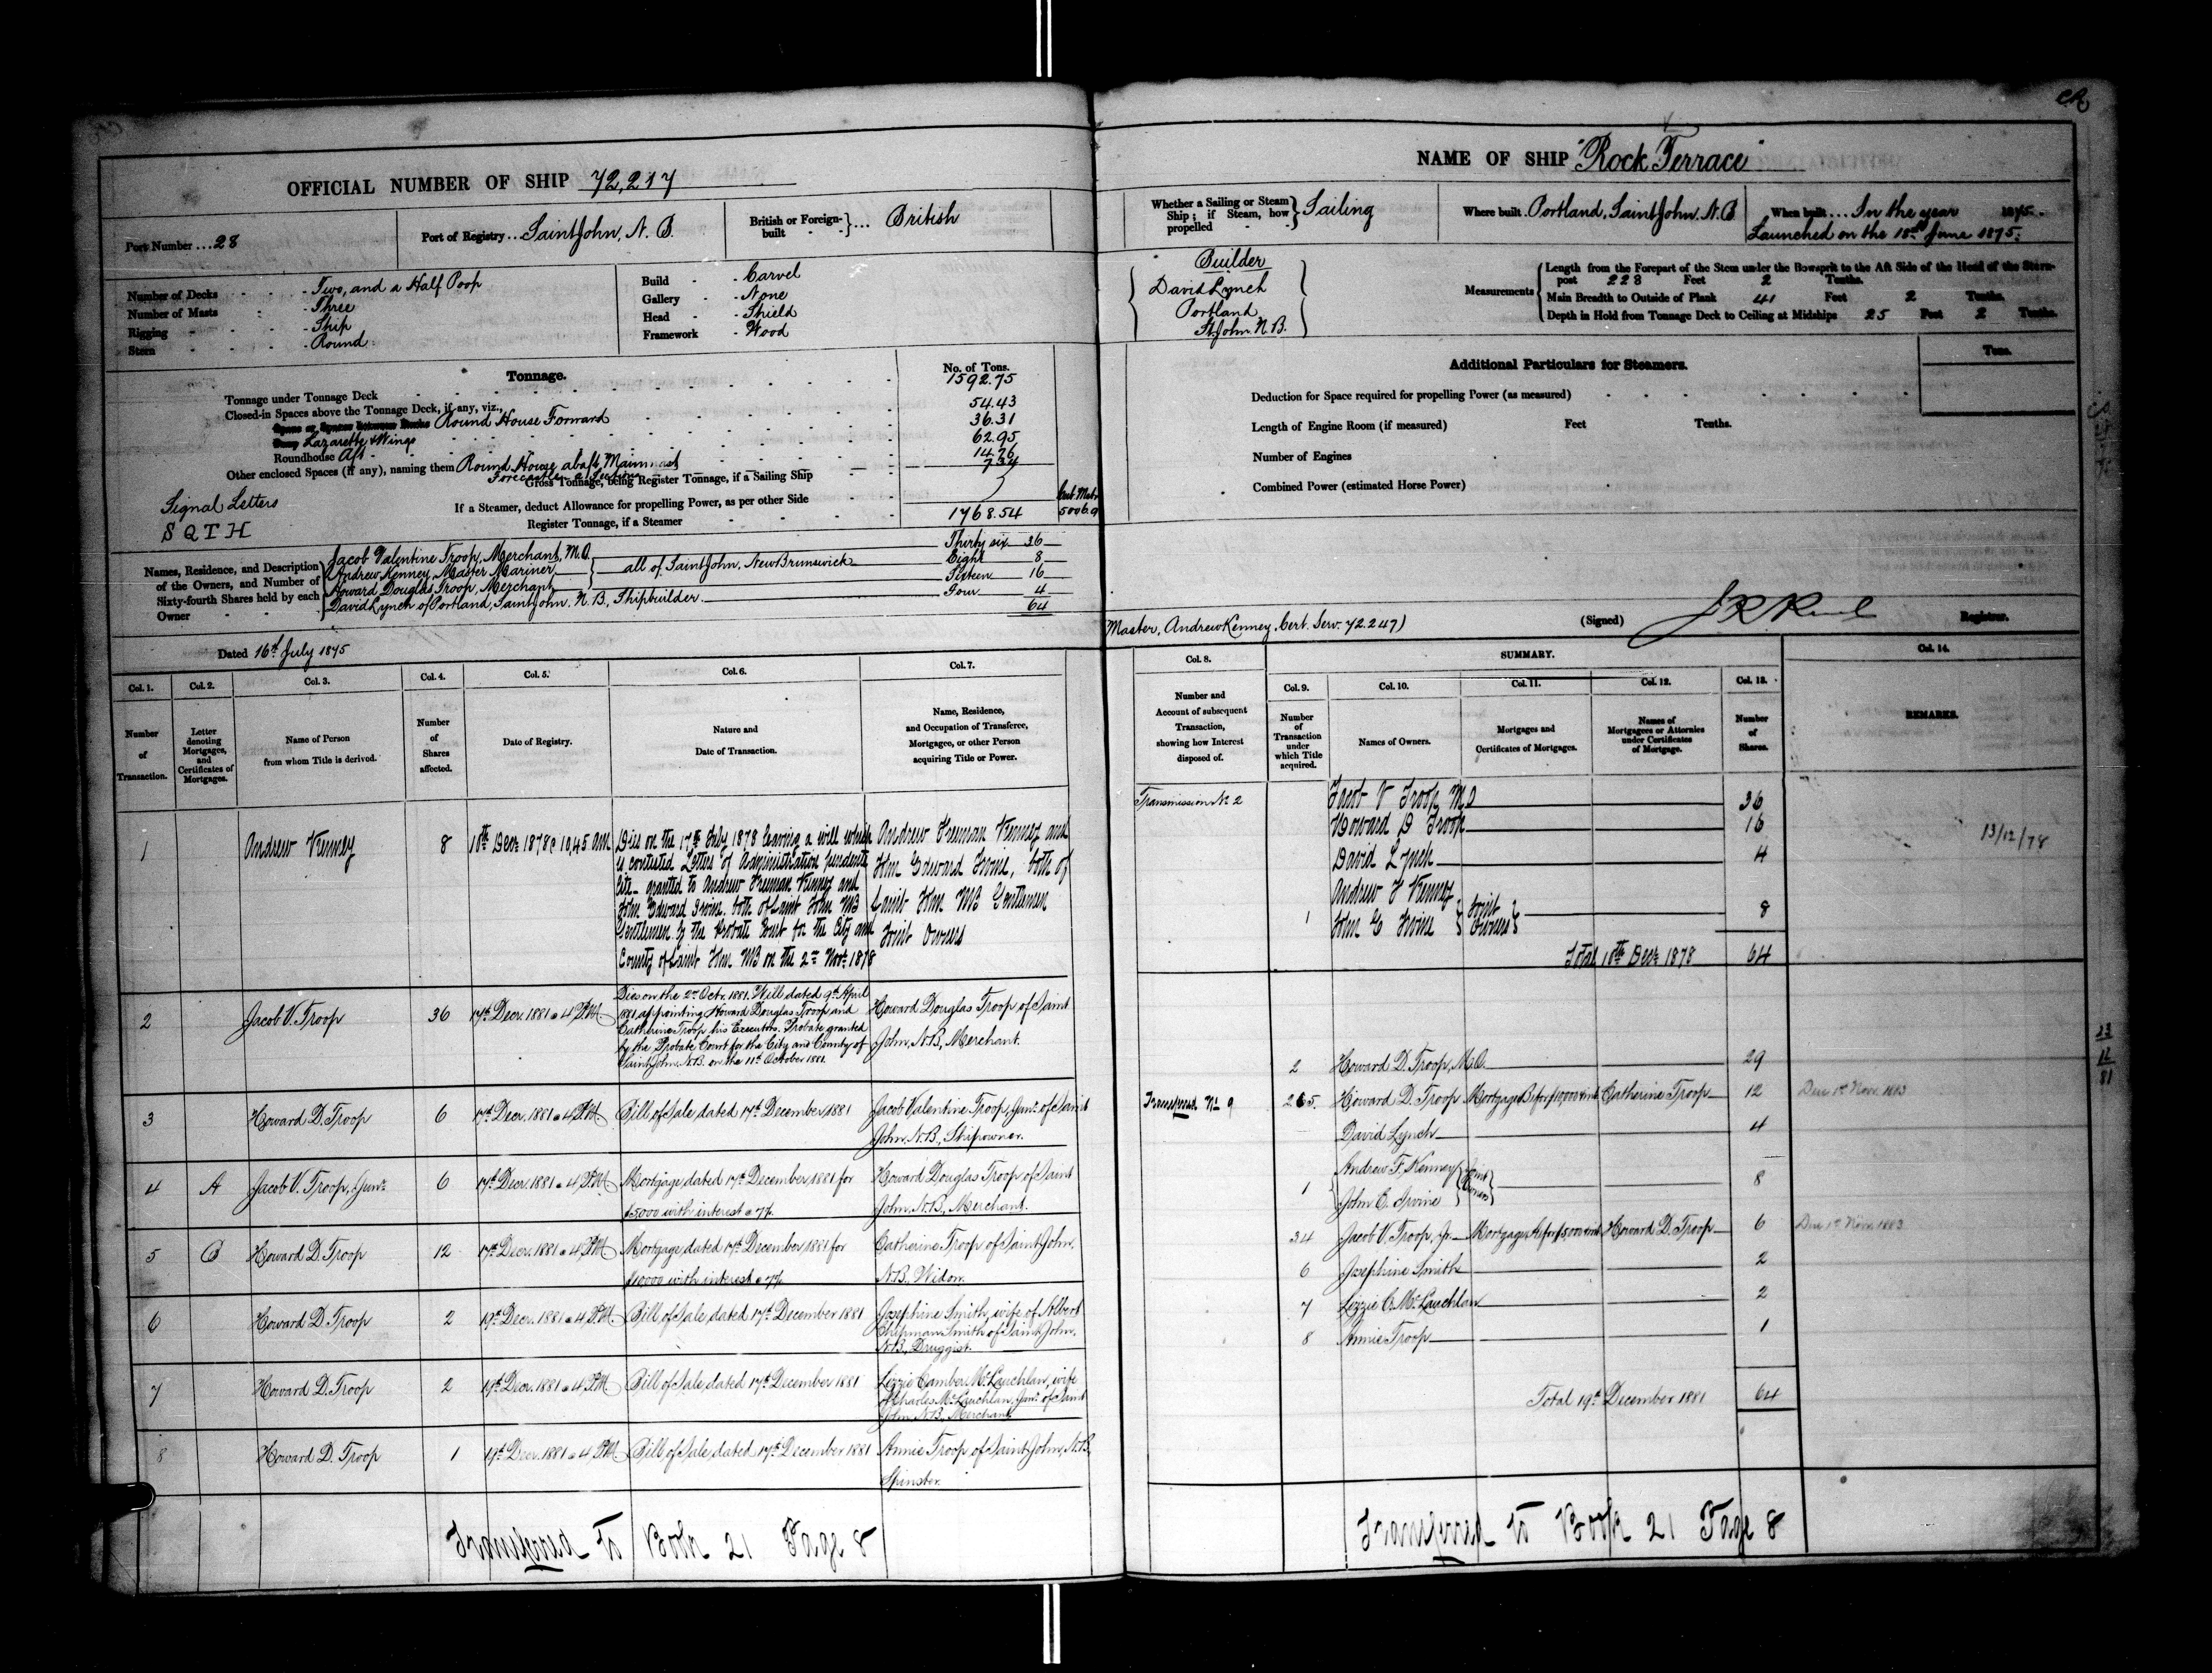 OFFICIAL NUMBER OF SHIP 72,217
Port Number ... 28
Port of Registry ... Saint John, N.B.
British or Foreign-built } ... British
Number of Decks - Two, and a Half Poop
Number of Masts - Three
Rigging - Ship
Stern - Round
Build - Carvel
Gallery - None
Head - Shield
Framework - Wood
Tonnage.
No. of Tons.
Tonnage under Tonnage Deck 1592.75
Closed-in Spaces above the Tonnage Deck, if any, viz.,
Round House Forward 54.43
Lazarette & Wings 36.31
Roundhouse Aft 62.95
Other enclosed Spaces (if any), naming them Round House abaft Mainmast 14.76
Gross Tonnage, being Register Tonnage, if a Sailing Ship
If a Steamer, deduct Allowance for propelling Power, as per other Side
Register Tonnage, if a Steamer 1768.54
Signal Letters
S Q T H
Names, Residence, and Description of the Owners, and Number of Sixty-fourth Shares held by each Owner
Jacob Valentine Troop, Merchant, M.O. Thirty six 36
Andrew Kenney, Master Mariner } all of Saint John, New Brunswick Eight 8
Howard Douglas Troop, Merchant Sixteen 16
David Lynch of Portland, Saint John, N.B., Shipbuilder Four 4
64
Dated 16th July 1875
Col. 1. Col. 2. Col. 3. Col. 4. Col. 5. Col. 6. Col. 7.
Number of Transaction.
Letter denoting Mortgages, and Certificates of Mortgages.
Name of Person from whom Title is derived.
Number of Shares affected.
Date of Registry.
Nature and Date of Transaction.
Name, Residence, and Occupation of Transferee, Mortgagee, or other Person acquiring Title or Power.
1 Andrew Kenney 8 10th Decr 1878 @ 10,45 am
Dies on the 17th July 1878 leaving a will which
is contested Letters of Administration pendente
lite granted to Andrew Freeman Kenney and
John Edward Irvine both of Saint John NB
Gentlemen by the Probate Court for the City and
County of Saint John NB on the 2nd Novr 1878
Andrew Freeman Kenney and
John Edward Irvine, both of
Saint John NB Gentlemen
Joint Owners
2 Jacob V. Troop 36 17th Decr. 1881 @ 4 P.M
Dies on the 2nd Octr. 1881. Will dated 9th April
1881 appointing Howard Douglas Troop and
Catherine Troop his Executors. Probate granted
by the Probate Court for the City and County of
Saint John N.B. on the 11th October 1881.
Howard Douglas Troop of Saint
John, N.B., Merchant.
3 Howard D. Troop 6 17th Decr. 1881 @ 4 P.M Bill of Sale dated 17th December 1881
Jacob Valentine Troop, Junr. of Saint
John, N.B., Shipowner.
4 A Jacob V. Troop, Junr. 6 17th Decr. 1881 @ 4 P.M Mortgage dated 17th December 1881 for
$5000 with interest @ 7%
Howard Douglas Troop of Saint
John, N.B., Merchant.
5 B Howard D. Troop 12 17th Decr. 1881 @ 4 P.M Mortgage dated 17th December 1881 for
$10000 with interest @ 7%
Catherine Troop of Saint John,
N.B., Widow.
6 Howard D. Troop 2 19th Decr. 1881 @ 4 P.M. Bill of Sale dated 17th December 1881
Josephine Smith, wife of Albert
Chipman Smith of Saint John,
N.B., Druggist.
7 Howard D. Troop 2 19th Decr. 1881 @ 4 P.M Bill of Sale dated 17th December 1881
Lizzie Camber McLauchlan, wife
of Charles McLauchlan, Junr. of Saint
John, N.B., Merchant.
8 Howard D. Troop 1 19th Decr. 1881 @ 4 P.M Bill of Sale dated 17th December 1881
Annie Troop of Saint John, N.B.
Spinster.
Transferred to Book 21 Page 8
NAME OF SHIP "Rock Terrace"
Whether a Sailing or Steam Ship; if Steam, how propelled } Sailing
Where built. Portland, Saint John, N.B
When built ... In the year 1875.
Launched on the 18th June 1875.
Builder
David Lynch
Portland
St. John. N.B.
Measurements
Length from the Forepart of the Stem under the Bowsprit to the Aft Side of the Head of the Stern-
post 228 Feet 2 Tenths.
Main Breadth to Outside of Plank 41 Feet 2 Tenths.
Depth in Hold from Tonnage Deck to Ceiling at Midships 25 Feet 2 Tenths.
Additional Particulars for Steamers.
Tons.
Deduction for Space required for propelling Power (as measured)
Length of Engine Room (if measured) Feet Tenths.
Number of Engines
Combined Power (estimated Horse Power)
Master, Andrew Kenney, Cert. Serv. 72.247)
(Signed) Registrar.
Col. 8. SUMMARY. Col. 14.
Col. 9. Col. 10. Col. 11. Col. 12. Col. 13.
Number and Account of subsequent Transaction, showing how Interest disposed of.
Number of Transaction under which Title acquired.
Names of Owners.
Mortgages and Certificates of Mortgages.
Names of Mortgagees or Attornies under Certificates of Mortgage.
Number of Shares.
REMARKS.
Transmission No 2 Jacob V Troop M.O 36
Howard D Troop 16
David Lynch 4
1 Andrew F Kenney
John E Irvine } Joint Owners 8
Total 10th Decr 1878 64
13/12/78
2 Howard D. Troop, M.O. 29
Transferred No 9 2&5. Howard D. Troop Mortgage B for $10,000 & int. Catherine Troop 12 Due 1st Nov. 1883
David Lynch 4
1 Andrew F. Kenney
John E. Irvine } Joint Owners 8
3&4 Jacob V. Troop, Jr. Mortgage A for $5,000 & int. Howard D. Troop 6 Due 1st Nov. 1883
6 Josephine Smith 2
7 Lizzie C. McLauchlan 2
8 Annie Troop 1
Total 19th December 1881 64
23
12
81
Transferred to Book 21 Page 8